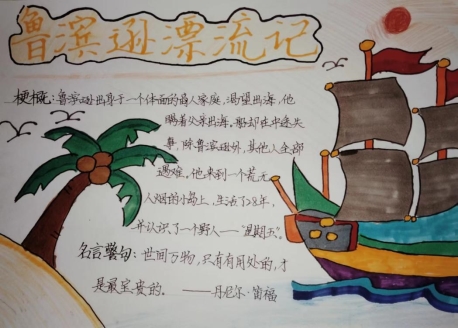 鲁滨逊漂流记
梗概:鲁滨逊出身于一个体面的商人家庭,渴望出海,他
瞒着父亲出海。船却在中途失
事,除鲁滨逊外,其他人全部
遇难。他来到一个荒无
人烟的小岛上,生活了28年,
并认识了一个野人——"星期五"。
名言警句:世间万物,只有有用处的,才
是最宝贵的。——丹尼尔·笛福